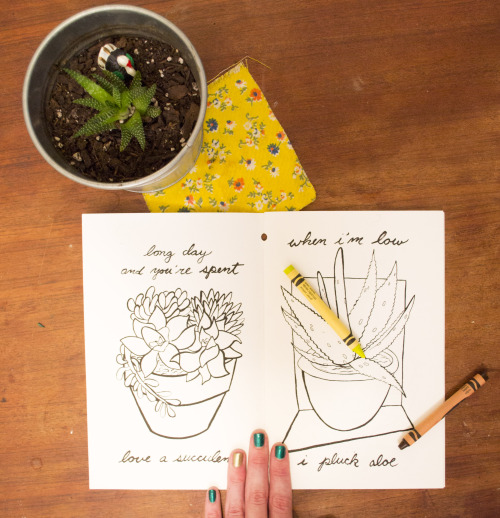 long day
and you're spent
love a succulen
when i'm low
i pluck aloe